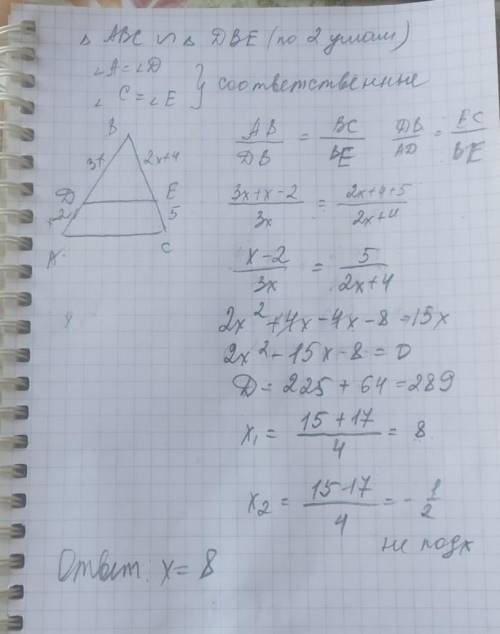 △ ABC ∽ △ DBE (по 2 углам)
∠A = ∠D
∠C = ∠E } соответственные
B
3x 2x+4
D E
x-2 5
A C
AB/DB = BC/BE DB/AD = EC/BE
(3x+x-2)/3x = (2x+4+5)/(2x+4)
(x-2)/3x = 5/(2x+4)
2x² + 4x - 4x - 8 = 15x
2x² - 15x - 8 = 0
D = 225 + 64 = 289
x₁ = (15+17)/4 = 8
x₂ = (15-17)/4 = - 1/2
не подх
Ответ: x = 8